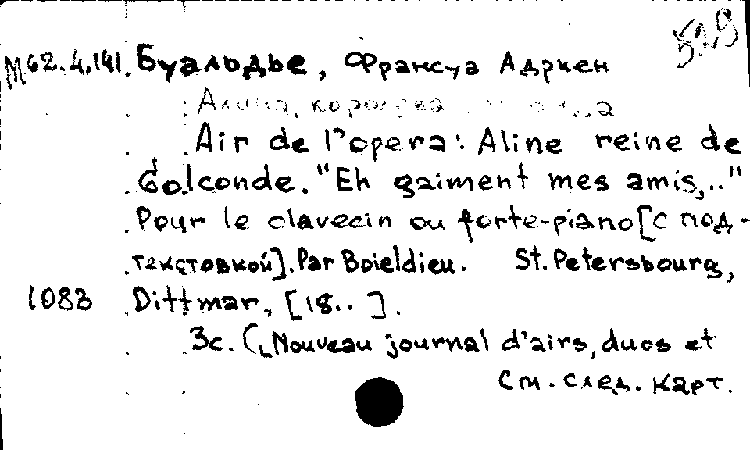 М62.4.141. Буальдье, Франсуа Адриен
Алина, королева
Air de l'opera: Aline reine de
Golconde. "Eh gaiment mes amis,.."
Pour le clavecin ou forte-piano [с под-
текстовкой]. Par Boieldieu. St. Petersbourg,
1083 Dittmar, [18.. ].
3с. („Nouveau journal d'airs, duos et
См. след. карт.